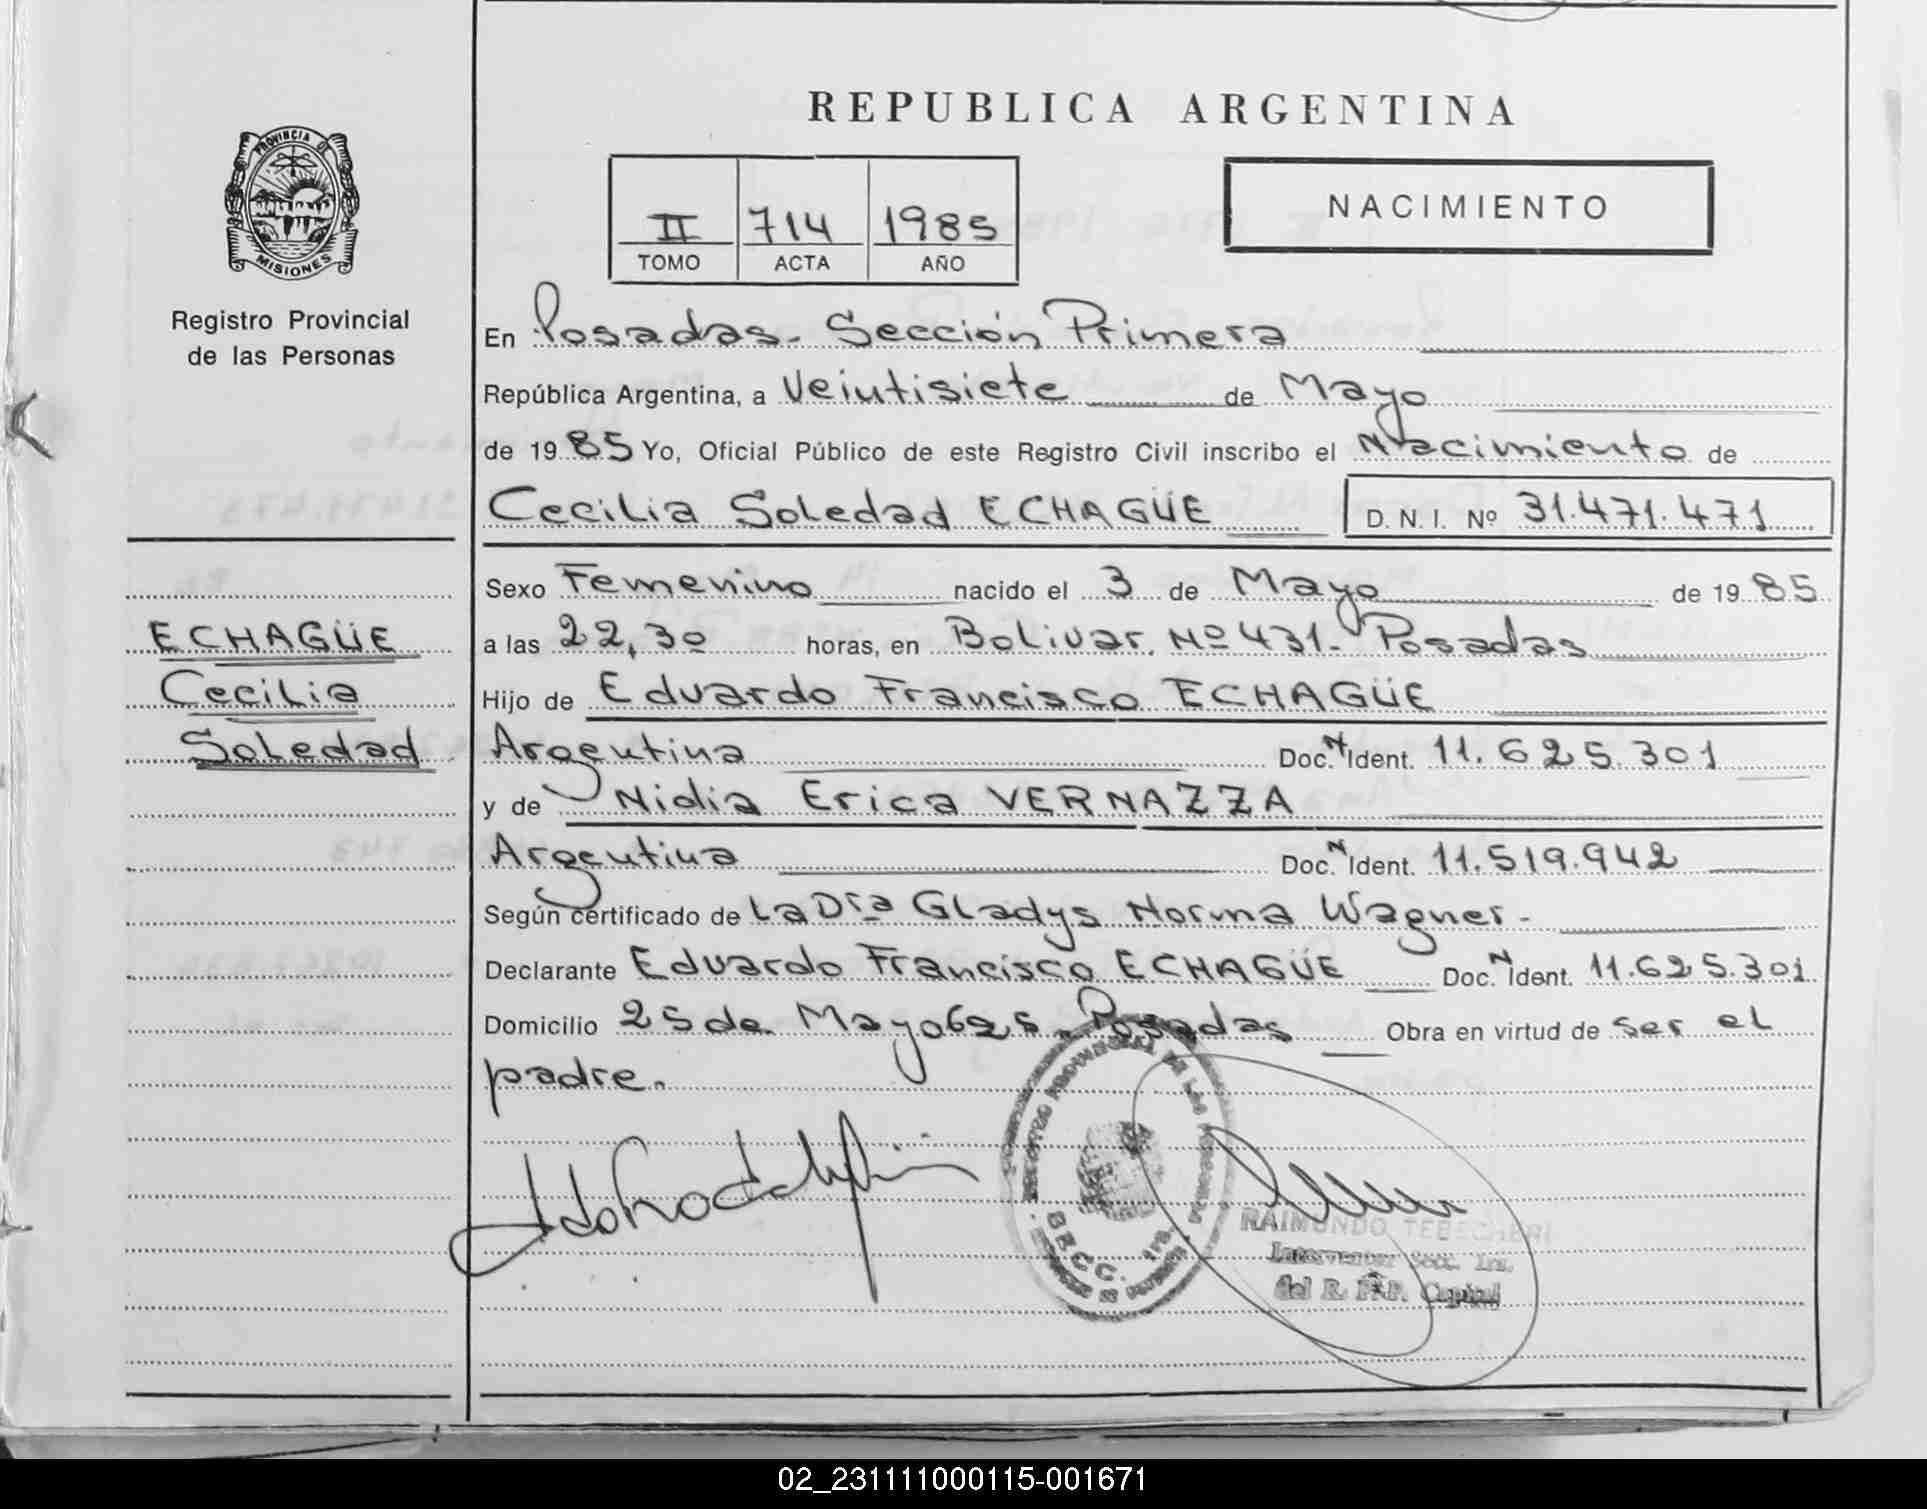 REPUBLICA ARGENTINA
PROVINCIA DE
MISIONES
Registro Provincial
de las Personas
II 714 1985
TOMO ACTA AÑO
NACIMIENTO
En Posadas. Sección Primera
República Argentina, a Veintisiete de Mayo
de 1985 Yo, Oficial Público de este Registro Civil inscribo el Nacimiento de
Cecilia Soledad ECHAGÜE D.N.I. Nº 31.471.471
Sexo Femenino nacido el 3 de Mayo de 1985
ECHAGÜE
Cecilia
Soledad
a las 22,30 horas, en Bolivar. Nº 431. Posadas
Hijo de Eduardo Francisco ECHAGÜE
Argentina Doc. N Ident. 11.625.301
y de Nidia Erica VERNAZZA
Argentina Doc. N Ident. 11.519.942
Según certificado de La Dra Gladys Norma Wagner.
Declarante Eduardo Francisco ECHAGÜE Doc. N Ident. 11.625.301
Domicilio 25 de Mayo 625. Posadas Obra en virtud de ser el
padre.
SECC. 1ra.
RAIMUNDO TEBECHERI
Interventor Secc. 1ra.
del R. P. P. Capital
02_231111000115-001671